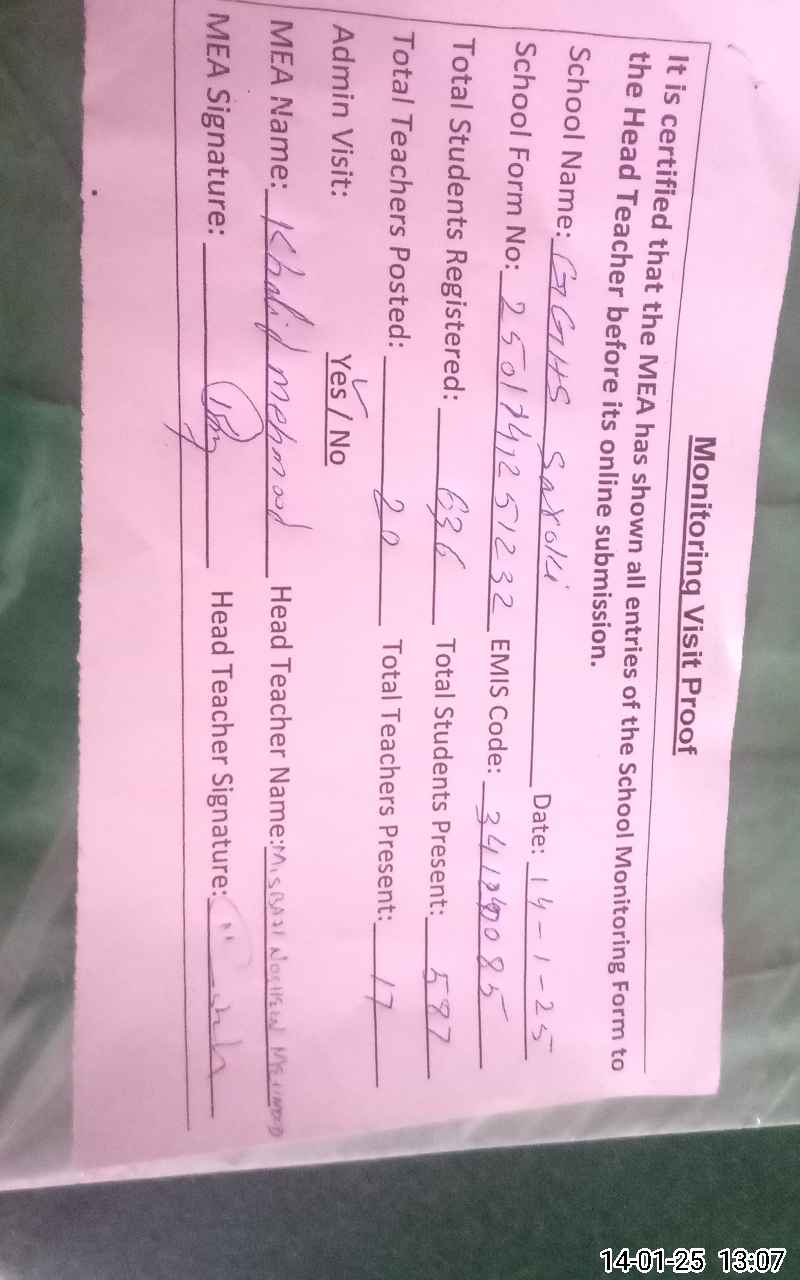 Monitoring Visit Proof
It is certified that the MEA has shown all entries of the School Monitoring Form to
the Head Teacher before its online submission.
School Name: GGHS Saroki Date: 14-1-25
School Form No: 250174,251232 EMIS Code:
Total Students Registered: 636 Total Students Present: 587
Total Teachers Posted: 20 Total Teachers Present: 17
Admin Visit: Yes / No
MEA Name: Khalid Mehmood Head Teacher Name: MISBAH
MEA Signature: Head Teacher Signature:
14-01-25 13:07